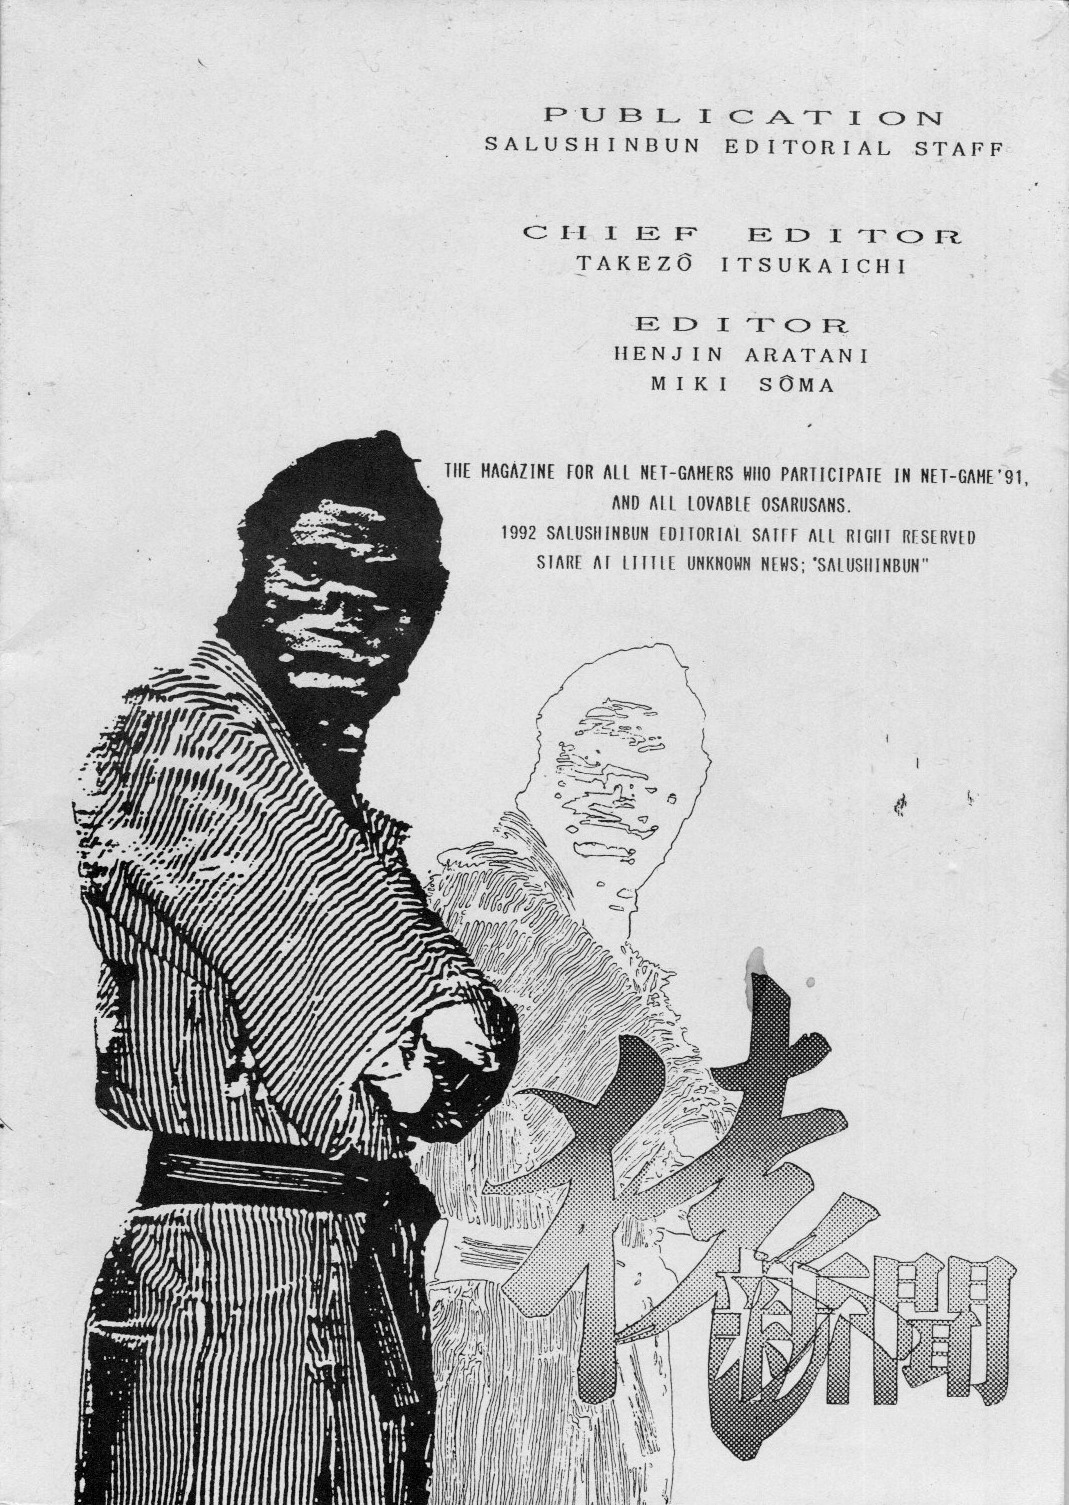 PUBLICATION
SALUSHINBUN EDITORIAL STAFF
CHIEF EDITOR
TAKEZÔ ITSUKAICHI
EDITOR
HENJIN ARATANI
MIKI SÔMA
THE MAGAZINE FOR ALL NET-GAMERS WHO PARTICIPATE IN NET-GAME'91,
AND ALL LOVABLE OSARUSANS.
1992 SALUSHINBUN EDITORIAL SATFF ALL RIGHT RESERVED
STARE AT LITTLE UNKNOWN NEWS; "SALUSHINBUN"
新聞